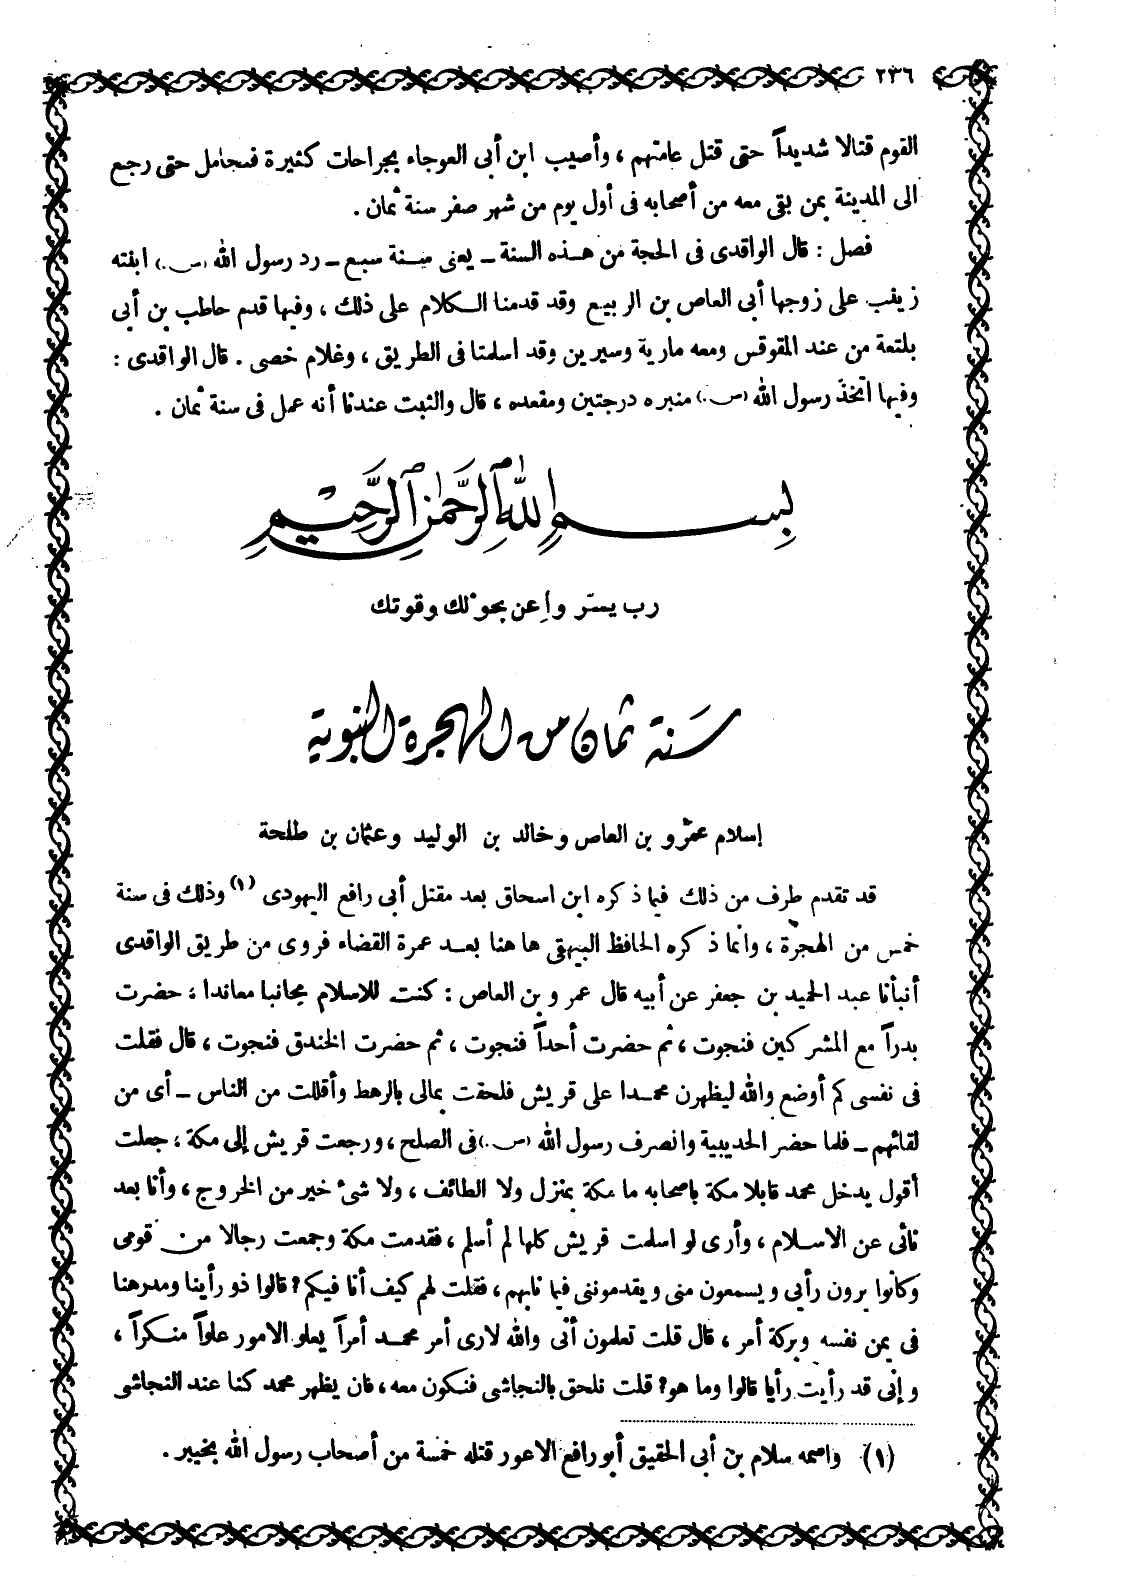 ٢٣٦
القوم قتالا شديداً حتى قتل عامتهم ، وأصيب ابن أبى العوجاء بجراحات كثيرة فتحامل حتى رجع
الى المدينة بمن بقى معه من أصحابه فى أول يوم من شهر صفر سنة ثمان .
فصل : قال الواقدى فى الحجة من هذه السنة ـ يعنى سنة سبع ـ رد رسول الله (ص.) ابنته
زينب على زوجها أبى العاص بن الربيع وقد قدمنا الكلام على ذلك ، وفيها قدم حاطب بن أبى
بلتعة من عند المقوقس ومعه مارية وسيرين وقد اسلمتا فى الطريق ، وغلام خصى . قال الواقدى :
وفيها اتخذ رسول الله (ص.) منبره درجتين ومقعده ، قال والثبت عندنا أنه عمل فى سنة ثمان .
بسم الله الرحمن الرحيم
رب يسّر وأعن بحولك وقوتك
سنة ثمان من الهجرة النبوية
إسلام عمرو بن العاص وخالد بن الوليد وعثمان بن طلحة
قد تقدم طرف من ذلك فيما ذكره ابن اسحاق بعد مقتل أبى رافع اليهودى (١) وذلك فى سنة
خمس من الهجرة ، وانما ذكره الحافظ البيهقى ها هنا بعد عمرة القضاء فروى من طريق الواقدى
أنبأنا عبد الحميد بن جعفر عن أبيه قال عمرو بن العاص : كنت للاسلام مجانبا معاندا ، حضرت
بدراً مع المشركين فنجوت ، ثم حضرت أحداً فنجوت ، ثم حضرت الخندق فنجوت ، قال فقلت
فى نفسى كم أوضع والله ليظهرن محمدا على قريش فلحقت بمالى بالرهط وأقللت من الناس ـ أى من
لقائهم ـ فلما حضر الحديبية وانصرف رسول الله (ص.) فى الصلح ، ورجعت قريش إلى مكة ، جعلت
أقول يدخل محمد قابلا مكة باصحابه ما مكة بمنزل ولا الطائف ، ولا شئ خير من الخروج ، وأنا بعد
نائى عن الاسلام ، وأرى لو اسلمت قريش كلها لم أسلم ، فقدمت مكة وجمعت رجالا من قومى
وكانوا يرون رأيى ويسمعون منى ويقدموننى فيما نابهم ، فقلت لهم كيف أنا فيكم؟ قالوا ذو رأينا ومدرهنا
فى يمن نفسه وبركة أمر ، قال قلت تعلمون أنى والله لارى أمر محمد أمراً يعلو الامور علواً منكراً ،
وإنى قد رأيت رأيا قالوا وما هو؟ قلت نلحق بالنجاشى فنكون معه ، فان يظهر محمد كنا عند النجاشى
(١) واسمه سلام بن أبى الحقيق أبو رافع الاعور قتله خمسة من أصحاب رسول الله بخيبر .